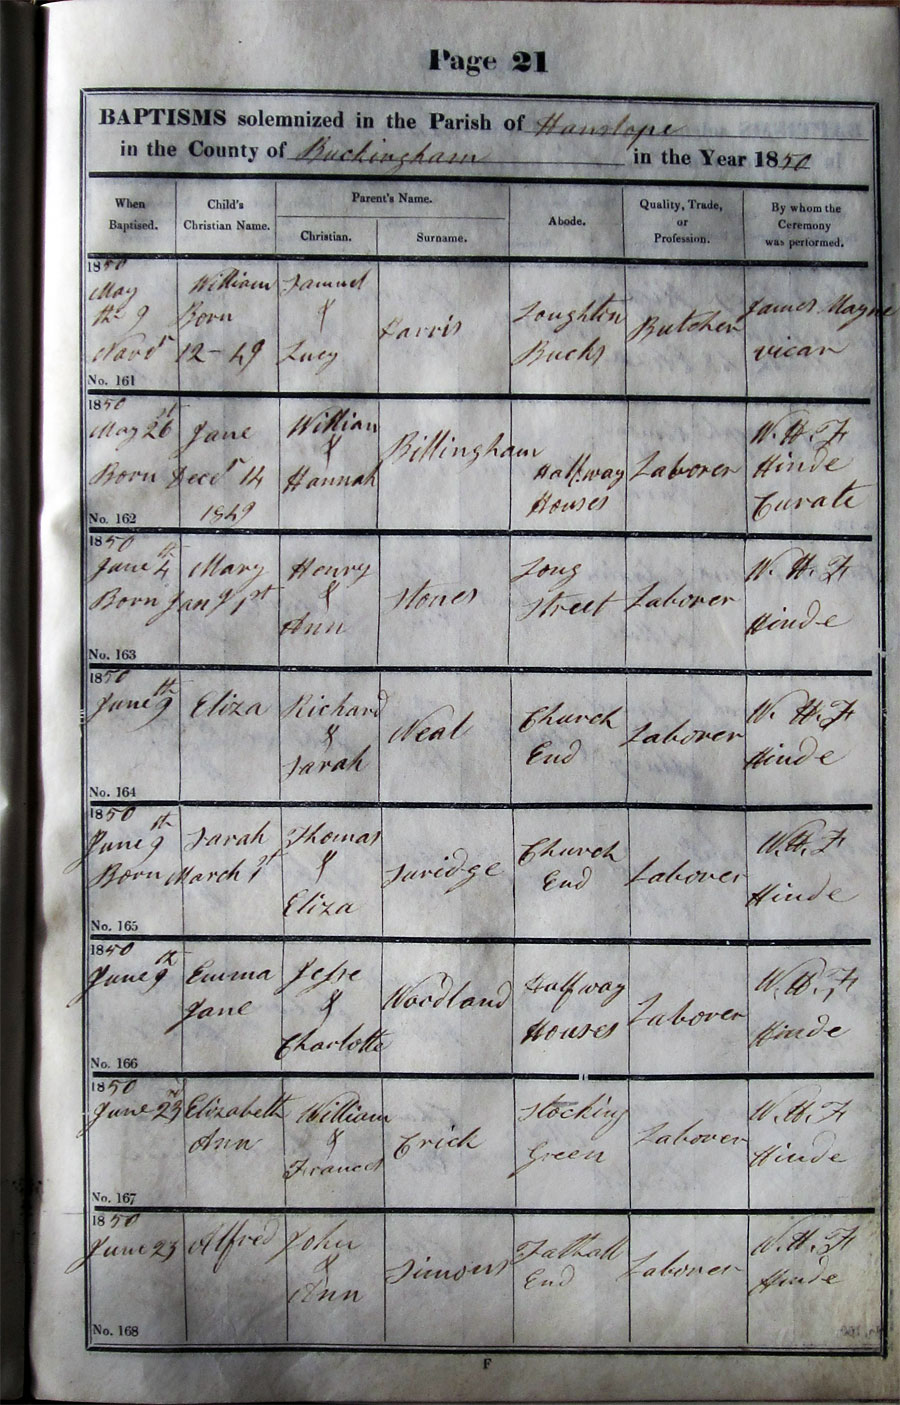 Page 21
BAPTISMS solemnized in the Parish of Hanslope
in the County of Buckingham in the Year 1850
When Baptised.
Child's Christian Name.
Parent's Name.
Christian.
Surname.
Abode.
Quality, Trade, or Profession.
By whom the Ceremony was performed.
1850
May
th 9
William
Born
12 - 49
Samuel
&
Lucy
Harris
Loughton
Bucks
Butcher
James Mayne
vicar
No. 161
1850
May 26
Born
Jane
Decr 14
1849
William
&
Hannah
Billingham
Halfway
Houses
Laborer
W. H. F
Hinde
Curate
No. 162
1850
June 4th
Born
Mary
Jany 1st
Henry
&
Ann
Stones
Long
Street
Laborer
W. H. F
Hinde
No. 163
1850
June 9th
Eliza
Richard
&
Sarah
Neal
Church
End
Laborer
W. H. F
Hinde
No. 164
1850
June 9th
Born
Sarah
March 1st
Thomas
&
Eliza
Suridge
Church
End
Laborer
W. H. F
Hinde
No. 165
1850
June 9th
Emma
Jane
Jesse
&
Charlotte
Woodland
Halfway
Houses
Laborer
W. H. F
Hinde
No. 166
1850
June 23
Elizabeth
Ann
William
&
Frances
Crick
Stocking
Green
Laborer
W. H. F
Hinde
No. 167
1850
June 23
Alfred
John
&
Ann
Simons
Tathall
End
Laborer
W. H. F
Hinde
No. 168
F